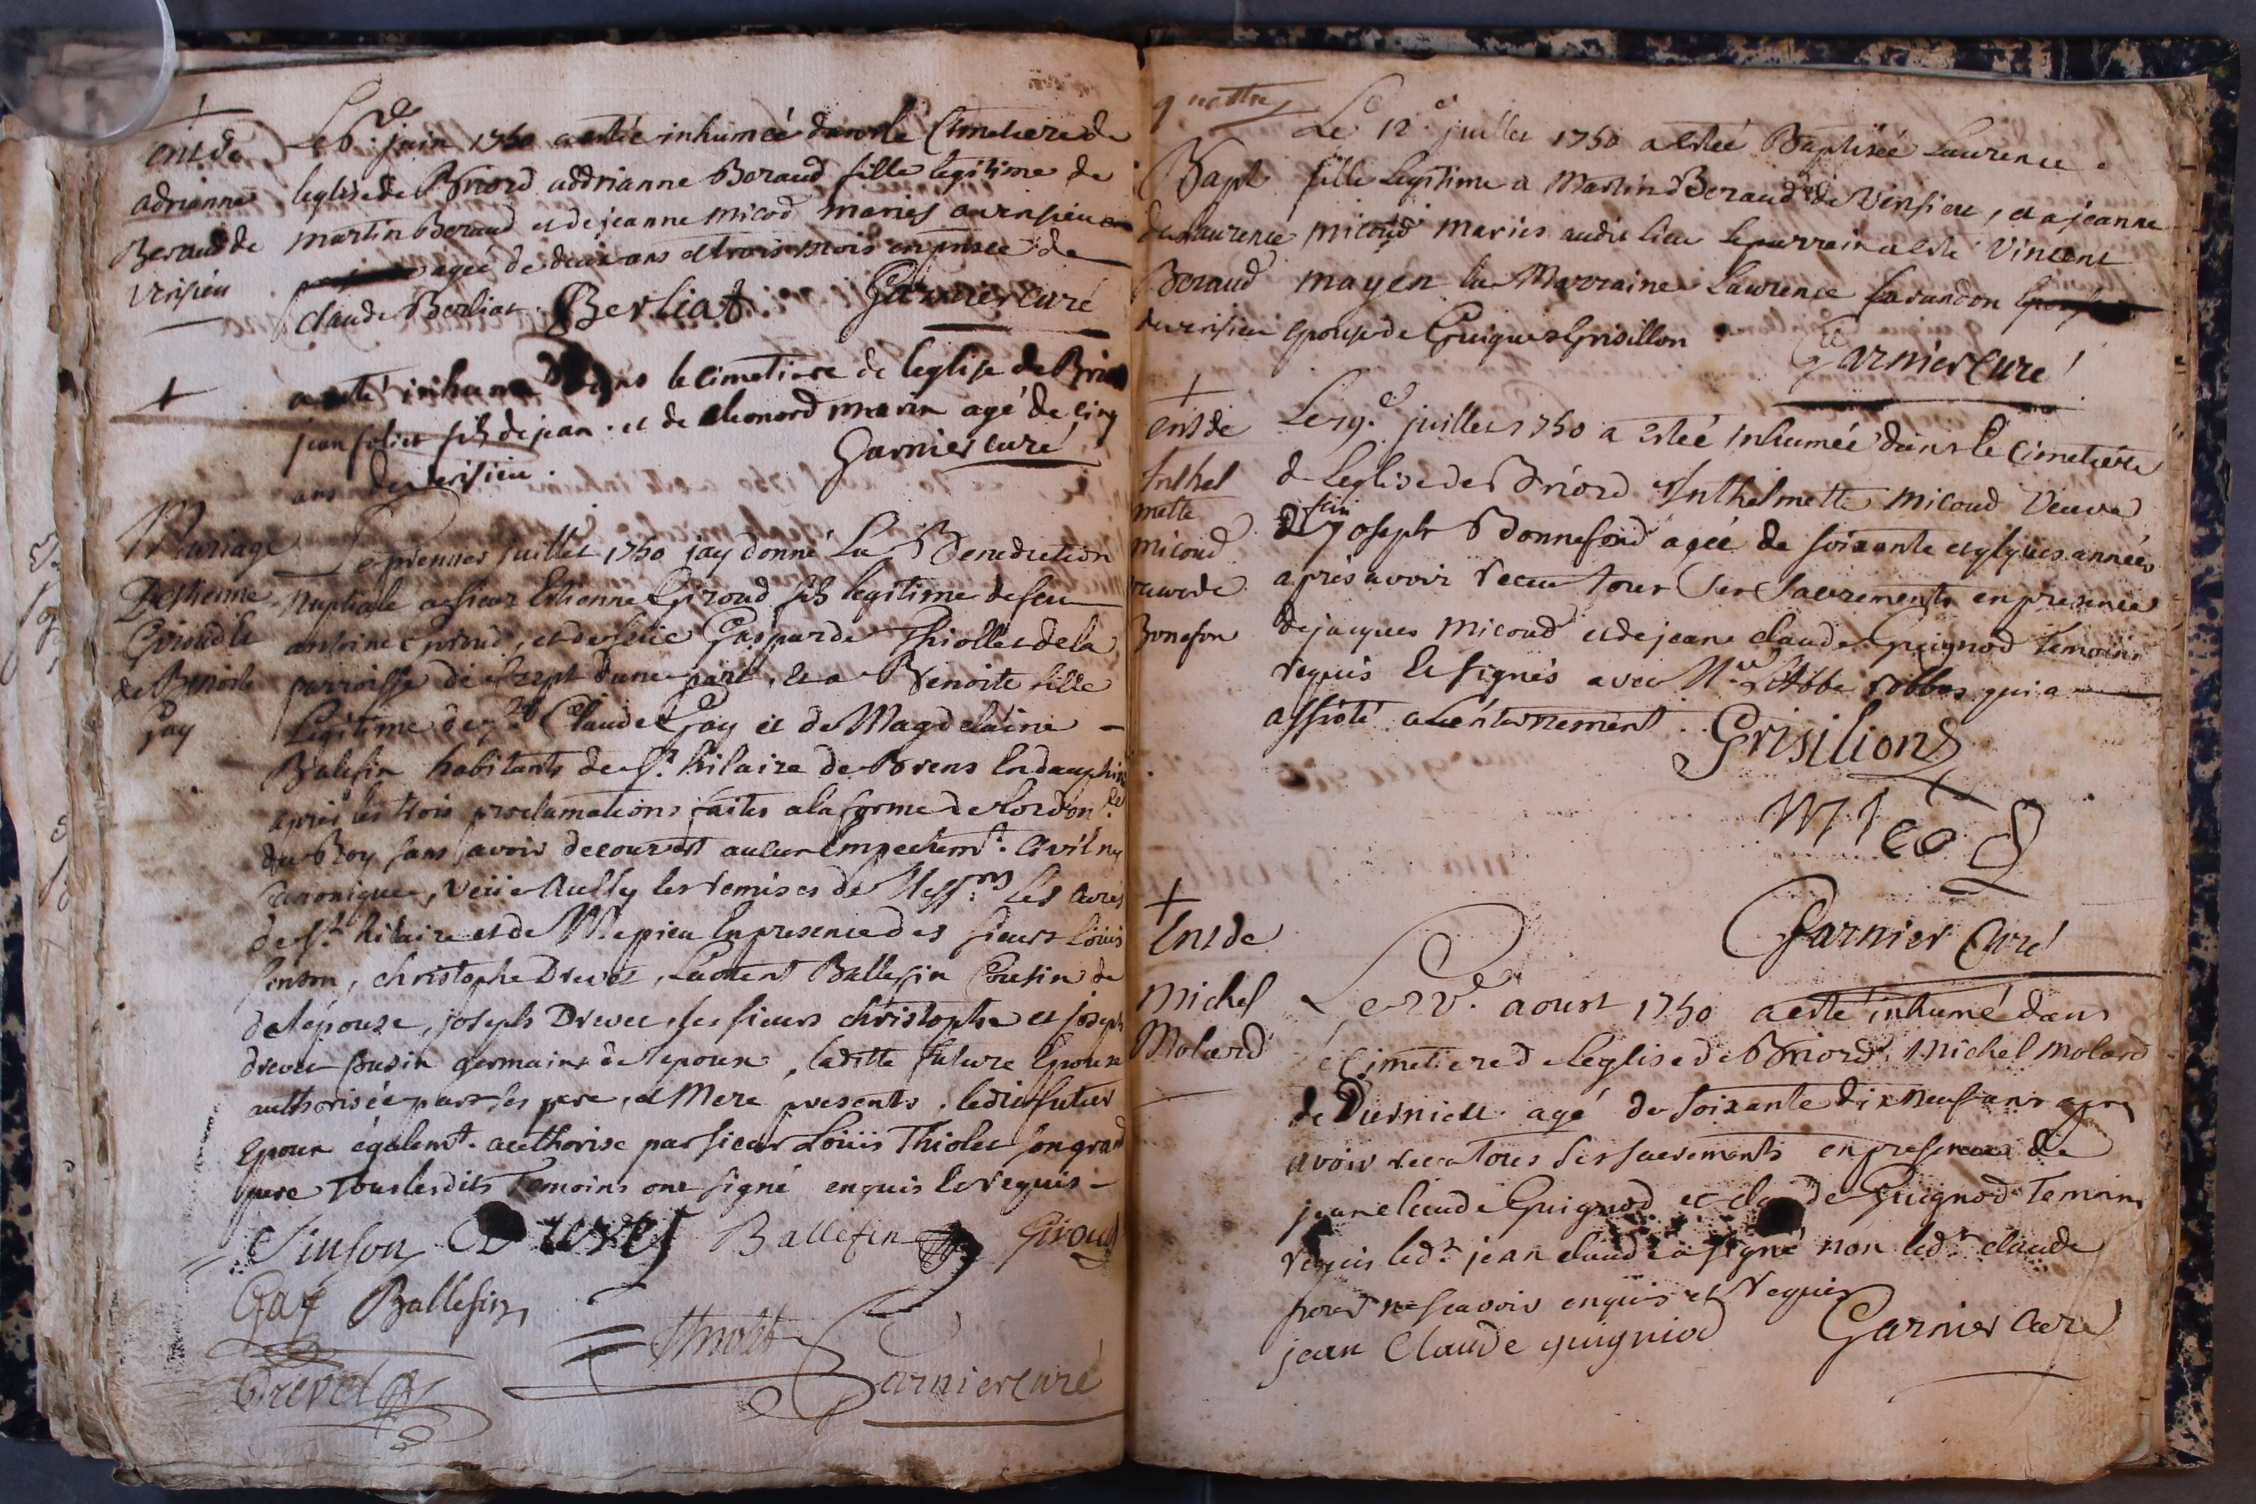 ent de
adrianne
Beraud de
verisieu
Le 6.e juin 1750 a estée inhumée dans le Cimetiere de
leglise de Briord addrianne Beraud fille legitime de
martin Beraud et de jeanne micod mariés a verisieu
agée de deux ans et trois mois en pnsce de
claude Berliat. Berliat Garnier curé
a esté inhumé dans le cimetiere de leglise de Briord
jean foliet fils de jean. et de eleonord marin agé de cinq
ans de verisieu. Garnier curé
Mariage
Detienne
Giroud et
de Benoite
Gay
Le premier juillet 1750 jay donné La Benediction
Nuptiale a sieur Estienne Giroud fils legitime de feu
antoine Giroud, et de Gasparde Thiollet de la
parroisse de Crept dune part, et a Benoite fille
Legitime de Sr. Claude Gay et de Magdelaine
Balefin habitants de St. hilaire de Brens En dauphiné
apres les trois proclamations faites a la forme de lordon.ce
du Roy sans avoir decouvert aucun Empechemt. Civil ny
Canonique, veüe Aussy les remises de Messrs. Les curés
de St. hilaire et de Mepieu En presence des sieurs Loüis
Sinson, christophe Drevet, Laurent Ballefin Cousin de
de lépouze, joseph Drevet, les sieurs christophe et joseph
drevet Cousin germains de lepoux, laditte future Epouze
authorisée par ses pere, et Mere presents, ledit futur
Epoux égalemt. authorisé par sieur Loüis Thiolet son grand
pere Tous lesdits Temoins ont signé enquis et requis
Sinson Drevet Ballefin Giroud
Gay Ballefin
Thiolet
Drevet Garnier curé
Bapt
de Laurence
Beraud
de verisieu
Le 12.e juillet 1750 a estée Baptisée Laurence
fille Legitime a Martin Beraud de Verisieu, et a jeanne
micoud mariés audit lieu le parrein a esté Vincent
mayen la Marraine Laurence farandon
epouse de Guigues Grisillon
Garnier Curé
ent de
Anthel
mette
micoud
veuve de
Bonefon
Le 19.e juillet 1750 a estée Inhumée dans le Cimetiere
de Leglise de Briord Anthelmette micoud Veuve
de feu joseph Bonnefond agée de soixante et qlques années
aprés avoir receu tous ses sacrements en presence
de jacques micoud et de jean claude Guignod temoins
requis et signés avec Mr. L'Abbe qui a
assisté a L'enterrement. Grisilions
Mico
Garnier Curé
Ent de
Michel
Molard
Le aoust 1750 a esté inhumé dans
le Cimetiere de Leglise de Briord, Michel Molard
de agé de soixante dix neuf ans apres
avoir receu tous ses sacrements en presence de
jean claude Guignod et claude Guignod Temoins
requis ledt. jean claude a signé non ledt. claude
pour ne scavoir enquis et requis
jean Claude guigniod Garnier Curé